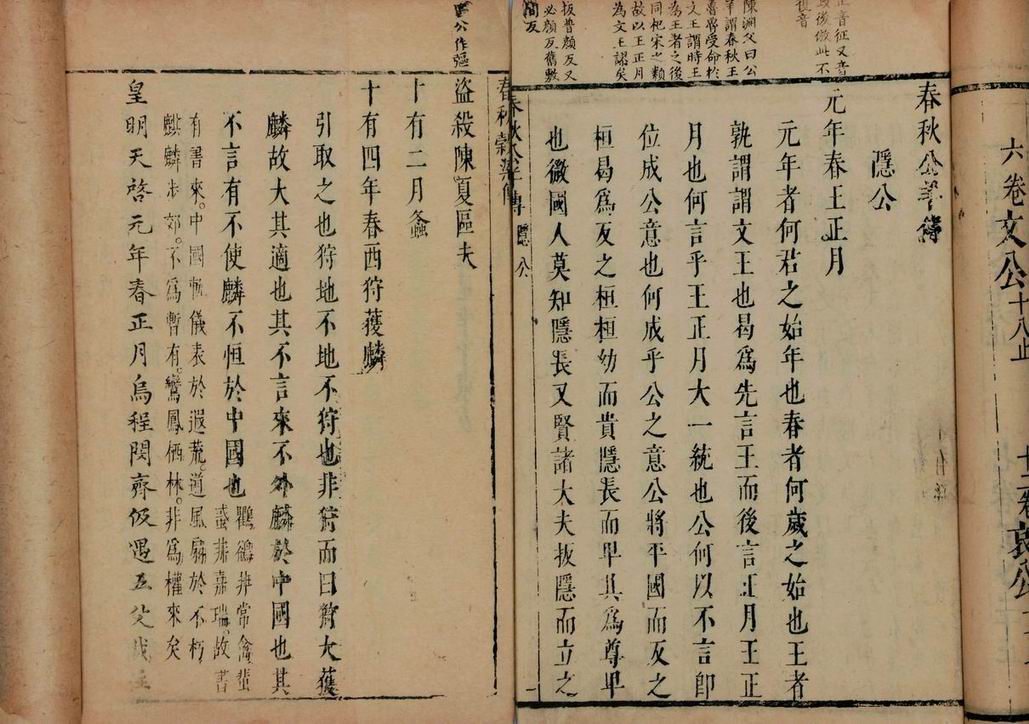 六卷文公十八止
春秋公羊傳
隱公
元年春王正月
元年者何君之始年也春者何歲之始也王者
孰謂謂文王也曷爲先言王而後言正月王正
月也何言乎王正月大一統也公何以不言卽
位成公意也何成乎公之意公將平國而反之
桓曷爲反之桓桓幼而貴隱長而卑其爲尊卑
也微國人莫知隱長又賢諸大夫扳隱而立之
陳淵父曰公
羊謂春秋王
魯魯受命於
文王謂時王
爲王者之後
同祀宋之類
故以王正月
爲文王謬矣
扳普顏反又
必顏反舊敷
間反
春秋公羊傳 隱公
春秋穀梁傳
公作彄
盜殺陳夏區夫
十有二月螽
十有四年春西狩獲麟
引取之也狩地不地不狩也非狩而曰狩大獲
麟故大其適也其不言來不外麟於中國也其
不言有不使麟不恒於中國也
鸜鵒非常禽蜚
蜮非嘉瑞故書
有書來中國軌儀表於遐荒道風扇於不朽
麒麟步郊不爲暫有鸞鳳栖林非爲權來矣
皇明天啓元年春正月烏程閔齊伋遇五父